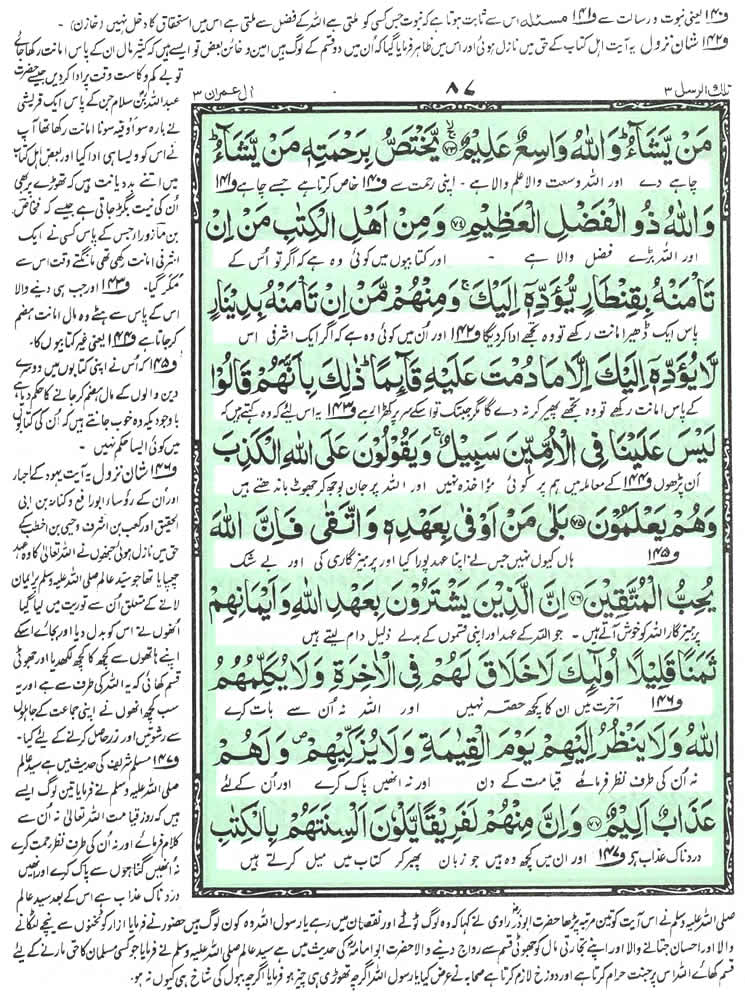 ف۱۴۰ یعنی نبوت و رسالت سے ف۱۴۱ مسئلہ اس سے ثابت ہوتا ہے کہ نبوت جس کسی کو ملتی ہے اللہ کے فضل سے ملتی ہے اس میں استحقاق کا دخل نہیں (خازن)
ف۱۴۲ شان نزول یہ آیت اہل کتاب کے حق میں نازل ہوئی اور اس میں ظاہر فرمایا گیا کہ اُن میں دو قسم کے لوگ ہیں امین و خائن بعض تو ایسے ہیں کہ کثیر مال ان کے پاس امانت رکھا جائے
تلك الرسل ۳
۸۷
اٰل عمرٰن ۳
مَنْ يَّشَآءُ ؕ وَاللّٰهُ وَاسِعٌ عَلِيْمٌ ﴿۷۳﴾ يَّخْتَصُّ بِرَحْمَتِهٖ مَنْ يَّشَآءُ ؕ
چاہے دے اور اللہ وسعت والا علم والا ہے - اپنی رحمت سے ف۱۴۰ خاص کرتا ہے جسے چاہے ف۱۴۱
وَاللّٰهُ ذُو الْفَضْلِ الْعَظِيْمِ ﴿۷۴﴾ وَمِنْ اَهْلِ الْكِتٰبِ مَنْ اِنْ
اور اللہ بڑے فضل والا ہے - اور کتابیوں میں کوئی وہ ہے کہ اگر تو اُس کے
تَاْمَنْهُ بِقِنْطَارٍ يُّؤَدِّهٖۤ اِلَيْكَ ۚ وَمِنْهُمْ مَّنْ اِنْ تَاْمَنْهُ بِدِيْنَارٍ
پاس ایک ڈھیر امانت رکھے تو وہ تجھے ادا کر دیگا ف۱۴۲ اور اُن میں کوئی وہ ہے کہ اگر ایک اشرفی اس
لَّا يُؤَدِّهٖۤ اِلَيْكَ اِلَّا مَا دُمْتَ عَلَيْهِ قَآئِمًا ؕ ذٰلِكَ بِاَنَّهُمْ قَالُوْا
کے پاس امانت رکھے تو وہ تجھے پھیر کر نہ دے گا مگر جب تک تو اسکے سر پر کھڑا رہے ف۱۴۳ یہ اس لئے کہ وہ کہتے ہیں کہ
لَيْسَ عَلَيْنَا فِى الْاُمِّيّٖنَ سَبِيْلٌ ۚ وَيَقُوْلُوْنَ عَلَى اللّٰهِ الْكَذِبَ
اَن پڑھوں ف۱۴۴ کے معاملہ میں ہم پر کوئی مؤاخذہ نہیں اور اللہ پر جان بوجھ کر جھوٹ باندھتے ہیں
وَهُمْ يَعْلَمُوْنَ ﴿۷۵﴾ بَلٰى مَنْ اَوْفٰى بِعَهْدِهٖ وَاتَّقٰى فَاِنَّ اللّٰهَ
ف۱۴۵ ہاں کیوں نہیں جس نے اپنا عہد پورا کیا اور پرہیزگاری کی اور بے شک
يُحِبُّ الْمُتَّقِيْنَ ﴿۷۶﴾ اِنَّ الَّذِيْنَ يَشْتَرُوْنَ بِعَهْدِ اللّٰهِ وَاَيْمَانِهِمْ
پرہیزگار اللہ کو خوش آتے ہیں - جو اللہ کے عہد اور اپنی قسموں کے بدلے ذلیل دام لیتے ہیں
ثَمَنًا قَلِيْلًا اُولٰٓئِكَ لَا خَلَاقَ لَهُمْ فِى الْاٰخِرَةِ وَلَا يُكَلِّمُهُمُ
ف۱۴۶ آخرت میں ان کا کچھ حصہ نہیں اور اللہ نہ اُن سے بات کرے
اللّٰهُ وَلَا يَنْظُرُ اِلَيْهِمْ يَوْمَ الْقِيٰمَةِ وَلَا يُزَكِّيْهِمْ ۪ وَلَهُمْ
نہ اُن کی طرف نظر فرمائے قیامت کے دن اور نہ انھیں پاک کرے اور ان کے لئے
عَذَابٌ اَلِيْمٌ ﴿۷۷﴾ وَاِنَّ مِنْهُمْ لَفَرِيْقًا يَّلْوٗنَ اَلْسِنَتَهُمْ بِالْكِتٰبِ
دردناک عذاب ہے ف۱۴۷ اور ان میں کچھ وہ ہیں جو زبان پھیر کر کتاب میں میل کرتے ہیں
تو بے کم و کاست وقت پر ادا کر دیں جیسے حضرت
عبداللہ بن سلام جن کے پاس ایک قریشی
نے بارہ سو اوقیہ سونا امانت رکھا تھا آپ
نے اس کو ویسا ہی ادا کیا اور بعض اہل کتاب
میں اتنے بد دیانت ہیں کہ تھوڑے پر بھی
اُن کی نیت بگڑ جاتی ہے جیسے کہ فنحاص
بن عازوراء جس کے پاس کسی نے ایک
اشرفی امانت رکھی تھی مانگتے وقت اس سے
مُکر گیا- ف۱۴۳ اور جب ہی دینے والا
اس کے پاس سے ہٹے وہ مال امانت ہضم
کر جاتا ہے ف۱۴۴ یعنی غیر کتابیوں کا-
ف۱۴۵ کہ اُس نے اپنی کتابوں میں دوسرے
دین والوں کے مال ہضم کر جانے کا حکم دیا ہے
باوجودیکہ وہ خوب جانتے ہیں کہ اُن کی کتابوں
میں کوئی ایسا حکم نہیں -
ف۱۴۶ شان نزول یہ آیت یہود کے احبار
اور اُن کے رؤساء ابو رافع و کنانہ بن ابی
الحقیق اور کعب بن اشرف و حیی بن اخطب کے
حق میں نازل ہوئی جنھوں نے اللہ تعالیٰ کا وہ عہد
چھپایا تھا جو سید عالم صلی اللہ علیہ وسلم پر ایمان
لانے کے متعلق اُن سے توریت میں لیا گیا
اُنھوں نے اس کو بدل دیا اور بجائے اسکے
اپنے ہاتھوں سے کچھ کا کچھ لکھدیا اور جھوٹی
قسم کھائی کہ یہ اللہ کی طرف سے ہے اور یہ
سب کچھ انھوں نے اپنی جماعت کے جاہلوں
سے رشوتیں اور زر حاصل کرنے کے لئے کیا-
ف۱۴۷ مسلم شریف کی حدیث میں ہے سید عالم
صلی اللہ علیہ وسلم نے فرمایا تین لوگ ایسے
ہیں کہ روز قیامت اللہ تعالیٰ نہ اُن سے
کلام فرمائے اور نہ اُن کی طرف نظر رحمت کرے
نہ اُنھیں گناہوں سے پاک کرے اور انھیں
دردناک عذاب ہے اس کے بعد سید عالم
صلی اللہ علیہ وسلم نے اس آیت کو تین مرتبہ پڑھا حضرت ابوذر راوی نے کہا کہ وہ لوگ ٹوٹے اور نقصان میں رہے یا رسول اللہ وہ کون لوگ ہیں حضور نے فرمایا ازار کو ٹخنوں سے نیچے لٹکانے
والا اور احسان جتانے والا اور اپنے تجارتی مال کو جھوٹی قسم سے رواج دینے والا حضرت ابو امامہ کی حدیث میں ہے سید عالم صلی اللہ علیہ وسلم نے فرمایا جو کسی مسلمان کا حق مارنے کے لئے
قسم کھائے اللہ اس پر جنت حرام کرتا ہے اور دوزخ لازم کرتا ہے صحابہ نے عرض کیا یا رسول اللہ اگرچہ تھوڑی ہی چیز ہو فرمایا اگرچہ ببول کی شاخ ہی کیوں نہ ہو.